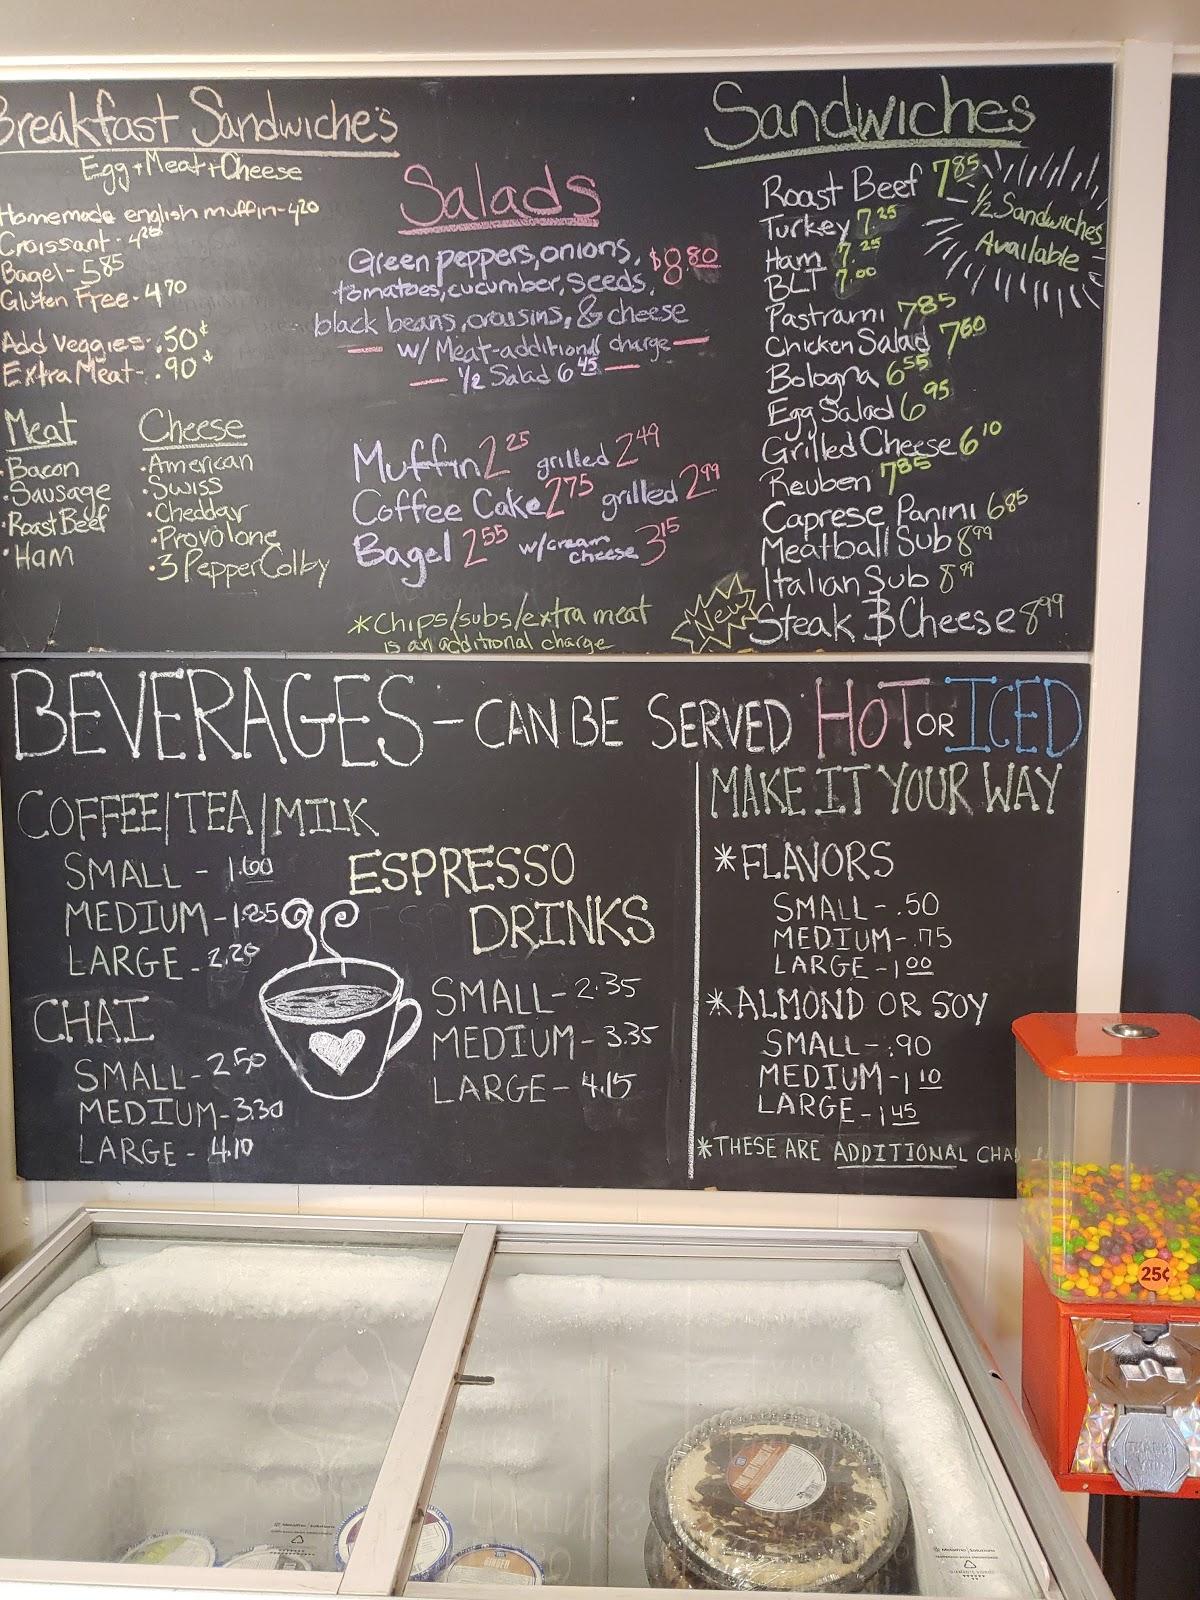 Breakfast Sandwiche's
Egg+Meat+Cheese
Homemade english muffin-4.20
Croissant-
Bagel-5.85
Gluten Free-4.70
Add Veggies-.50¢
Extra Meat-.90¢
Meat
·Bacon
·Sausage
·Roast Beef
·Ham
Cheese
·American
·Swiss
·Cheddar
·Provolone
·3 Pepper Colby
Salads
Green peppers, onions, $8.80
tomatoes, cucumber, seeds,
black beans, craisins, & cheese
— w/ Meat-additional charge —
— ½ Salad 6.45 —
Muffin 2.25 grilled 2.49
Coffee Cake 2.75 grilled 2.99
Bagel 2.55 w/cream cheese 3.15
*Chips/subs/extra meat
is an additional charge
Sandwiches
Roast Beef 7.85
Turkey 7.25
Ham 7.25
BLT 7.00
Pastrami 7.85
Chicken Salad 7.60
Bologna 6.55
Egg Salad 6.95
Grilled Cheese 6.10
Reuben 7.85
Caprese Panini 6.85
Meatball Sub 8.99
Italian Sub 8.99
New Steak & Cheese 8.99
½ Sandwiches
Available
BEVERAGES - CAN BE SERVED HOT OR ICED
COFFEE/TEA/MILK
SMALL - 1.60
MEDIUM - 1.85
LARGE - 2.20
CHAI
SMALL - 2.50
MEDIUM - 3.30
LARGE - 4.10
ESPRESSO
DRINKS
SMALL - 2.35
MEDIUM - 3.35
LARGE - 4.15
MAKE IT YOUR WAY
*FLAVORS
SMALL - .50
MEDIUM - .75
LARGE - 1.00
*ALMOND OR SOY
SMALL - .90
MEDIUM - 1.10
LARGE - 1.45
*THESE ARE ADDITIONAL CHA
25¢
THANK
YOU